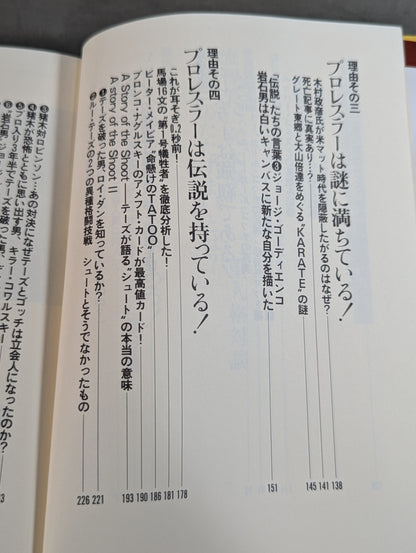 理由その三
プロレスラーは謎に満ちている!
木村政彦氏が米マット時代を隠蔽したがるのはなぜ? 138
死亡記事に真実あり…? 141
グレート東郷と大山倍達をめぐる“KARATE”の謎 145
「伝説」たちの言葉❸ジョージ・ゴーディエンコ
岩石男は白いキャンバスに新たな自分を描いた 151
理由その四
プロレスラーは伝説を持っている!
これが耳そぎ0.2秒前! 178
馬場16文の“第1号犠牲者”を徹底分析した! 181
ピーター・メイビア“命懸けのTATOO” 186
ブロンコ・ナグルスキーのアメフト・カードが最高値カード! 190
A Story of the Shoot I テーズが語る“シュート”の本当の意味 193
A Story of the Shoot II
❶テーズを破った男、ロイ・ダンを知っているか? 221
❷ルー・テーズの2つの異種格闘技戦 シュートとそうでなかったもの 226
❸猪木対ロビンソン…あの対決になぜテーズとゴッチは立会人になったのか?
❹猪木が怖ともに思い出す男、キラー・コワルスキー
❺プロ入り3年半でテーズを破った男、
❻岩石男・ジ